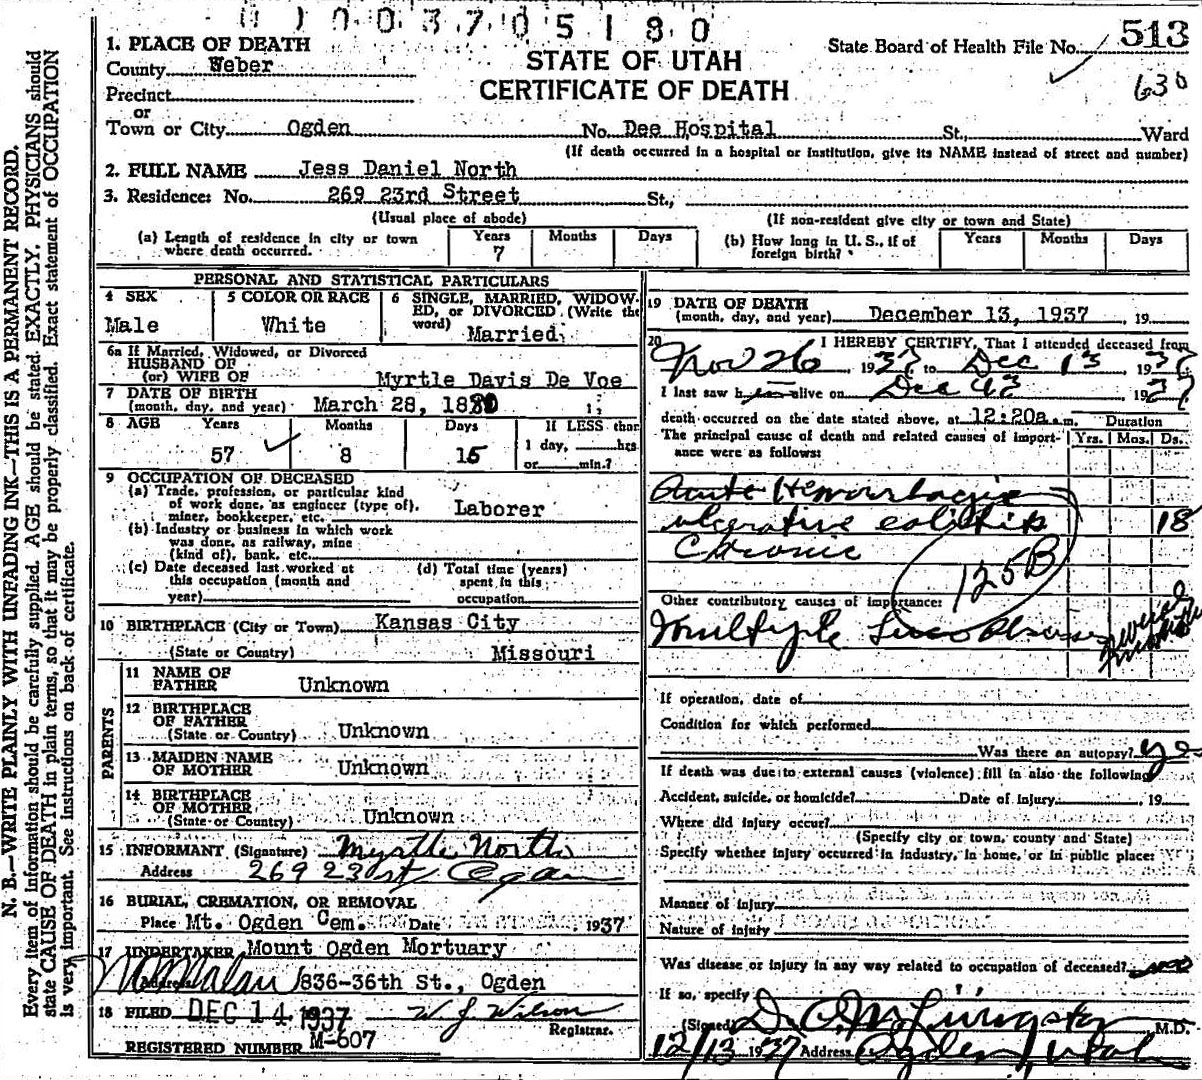 010037051 80
STATE OF UTAH
CERTIFICATE OF DEATH
State Board of Health File No. 513
630
1. PLACE OF DEATH
County Weber
Precinct
or
Town or City Ogden No. Dee Hospital St., Ward
(If death occurred in a hospital or institution, give its NAME instead of street and number)
2. FULL NAME Jess Daniel North
3. Residence: No. 269 23rd Street St.,
(Usual place of abode) (If non-resident give city or town and State)
(a) Length of residence in city or town where death occurred. Years 7 Months Days
(b) How long in U. S., if of foreign birth? Years Months Days
PERSONAL AND STATISTICAL PARTICULARS
4 SEX Male
5 COLOR OR RACE White
6 SINGLE, MARRIED, WIDOWED, or DIVORCED (Write the word) Married
6a If Married, Widowed, or Divorced
HUSBAND OF
(or) WIFE OF Myrtle Davis De Voe
7 DATE OF BIRTH
(month, day, and year) March 28, 1880
8 AGE Years 57 Months 8 Days 15 If LESS than 1 day, hrs or min.?
9 OCCUPATION OF DECEASED
(a) Trade, profession, or particular kind
of work done, as engineer (type of),
miner, bookkeeper, etc. Laborer
(b) Industry or business in which work
was done, as railway, mine
(kind of), bank, etc.
(c) Date deceased last worked at
this occupation (month and
year)
(d) Total time (years)
spent in this
occupation
10 BIRTHPLACE (City or Town) Kansas City
(State or Country) Missouri
PARENTS
11 NAME OF
FATHER Unknown
12 BIRTHPLACE
OF FATHER
(State or Country) Unknown
13 MAIDEN NAME
OF MOTHER Unknown
14 BIRTHPLACE
OF MOTHER
(State or Country) Unknown
15 INFORMANT (Signature) Myrtle North
Address 269 23 st Ogden
16 BURIAL, CREMATION, OR REMOVAL
Place Mt. Ogden Cem. Date 1937
17 UNDERTAKER Mount Ogden Mortuary
Address 836-36th St., Ogden
18 FILED DEC 14 1937 W J Wilson
Registrar.
REGISTERED NUMBER M-607
19 DATE OF DEATH
(month, day, and year) December 13, 1937, 19
20 I HEREBY CERTIFY, That I attended deceased from
Nov 26 1937 to Dec 13 1937
I last saw him alive on Dec 1937
death occurred on the date stated above, at 12:20a.m. Duration
The principal cause of death and related causes of importance were as follows: Yrs. Mos. Ds.
Acute Hemorrhagic
ulcerative colitis 18
Chronic
125B
Other contributory causes of importance:
Multiple several
If operation, date of
Condition for which performed
Was there an autopsy? yes
If death was due to external causes (violence) fill in also the following
Accident, suicide, or homicide? Date of injury , 19
Where did injury occur?
(Specify city or town, county and State)
Specify whether injury occurred in industry, in home, or in public place:
Manner of injury
Nature of injury
Was disease or injury in any way related to occupation of deceased? no
If so, specify
(Signed) Livingston M.D.
12/13 1937 Address Ogden, Utah
N. B.—WRITE PLAINLY WITH UNFADING INK—THIS IS A PERMANENT RECORD.
Every item of information should be carefully supplied. AGE should be stated EXACTLY. PHYSICIANS should
state CAUSE OF DEATH in plain terms, so that it may be properly classified. Exact statement of OCCUPATION
is very important. See instructions on back of certificate.